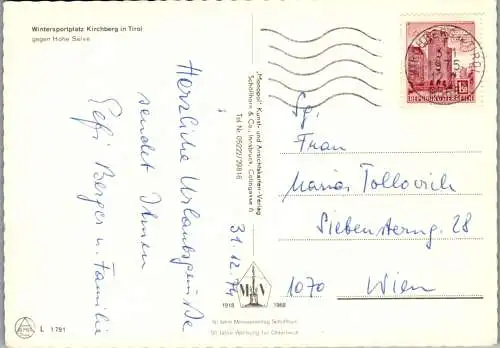 Wintersportplatz Kirchberg in Tirol
gegen Hohe Salve
Herzliche Urlaubsgrüße
sendet Ihnen
Pepi Berger u. Familie
31.12.74
"Monopol" Kunst- und Ansichtskarten-Verlag
Schöllhorn & Co., Innsbruck, Colingasse
Tel. Nr. 05222/29816
REPUBLIK ÖSTERREICH
Sg.
Frau
Maria Tollovich
Siebensterng. 28
1070 Wien
1918 1968
50 Jahre Monopolverlag Schöllhorn
50 Jahre Werbung für Österreich
L 1791